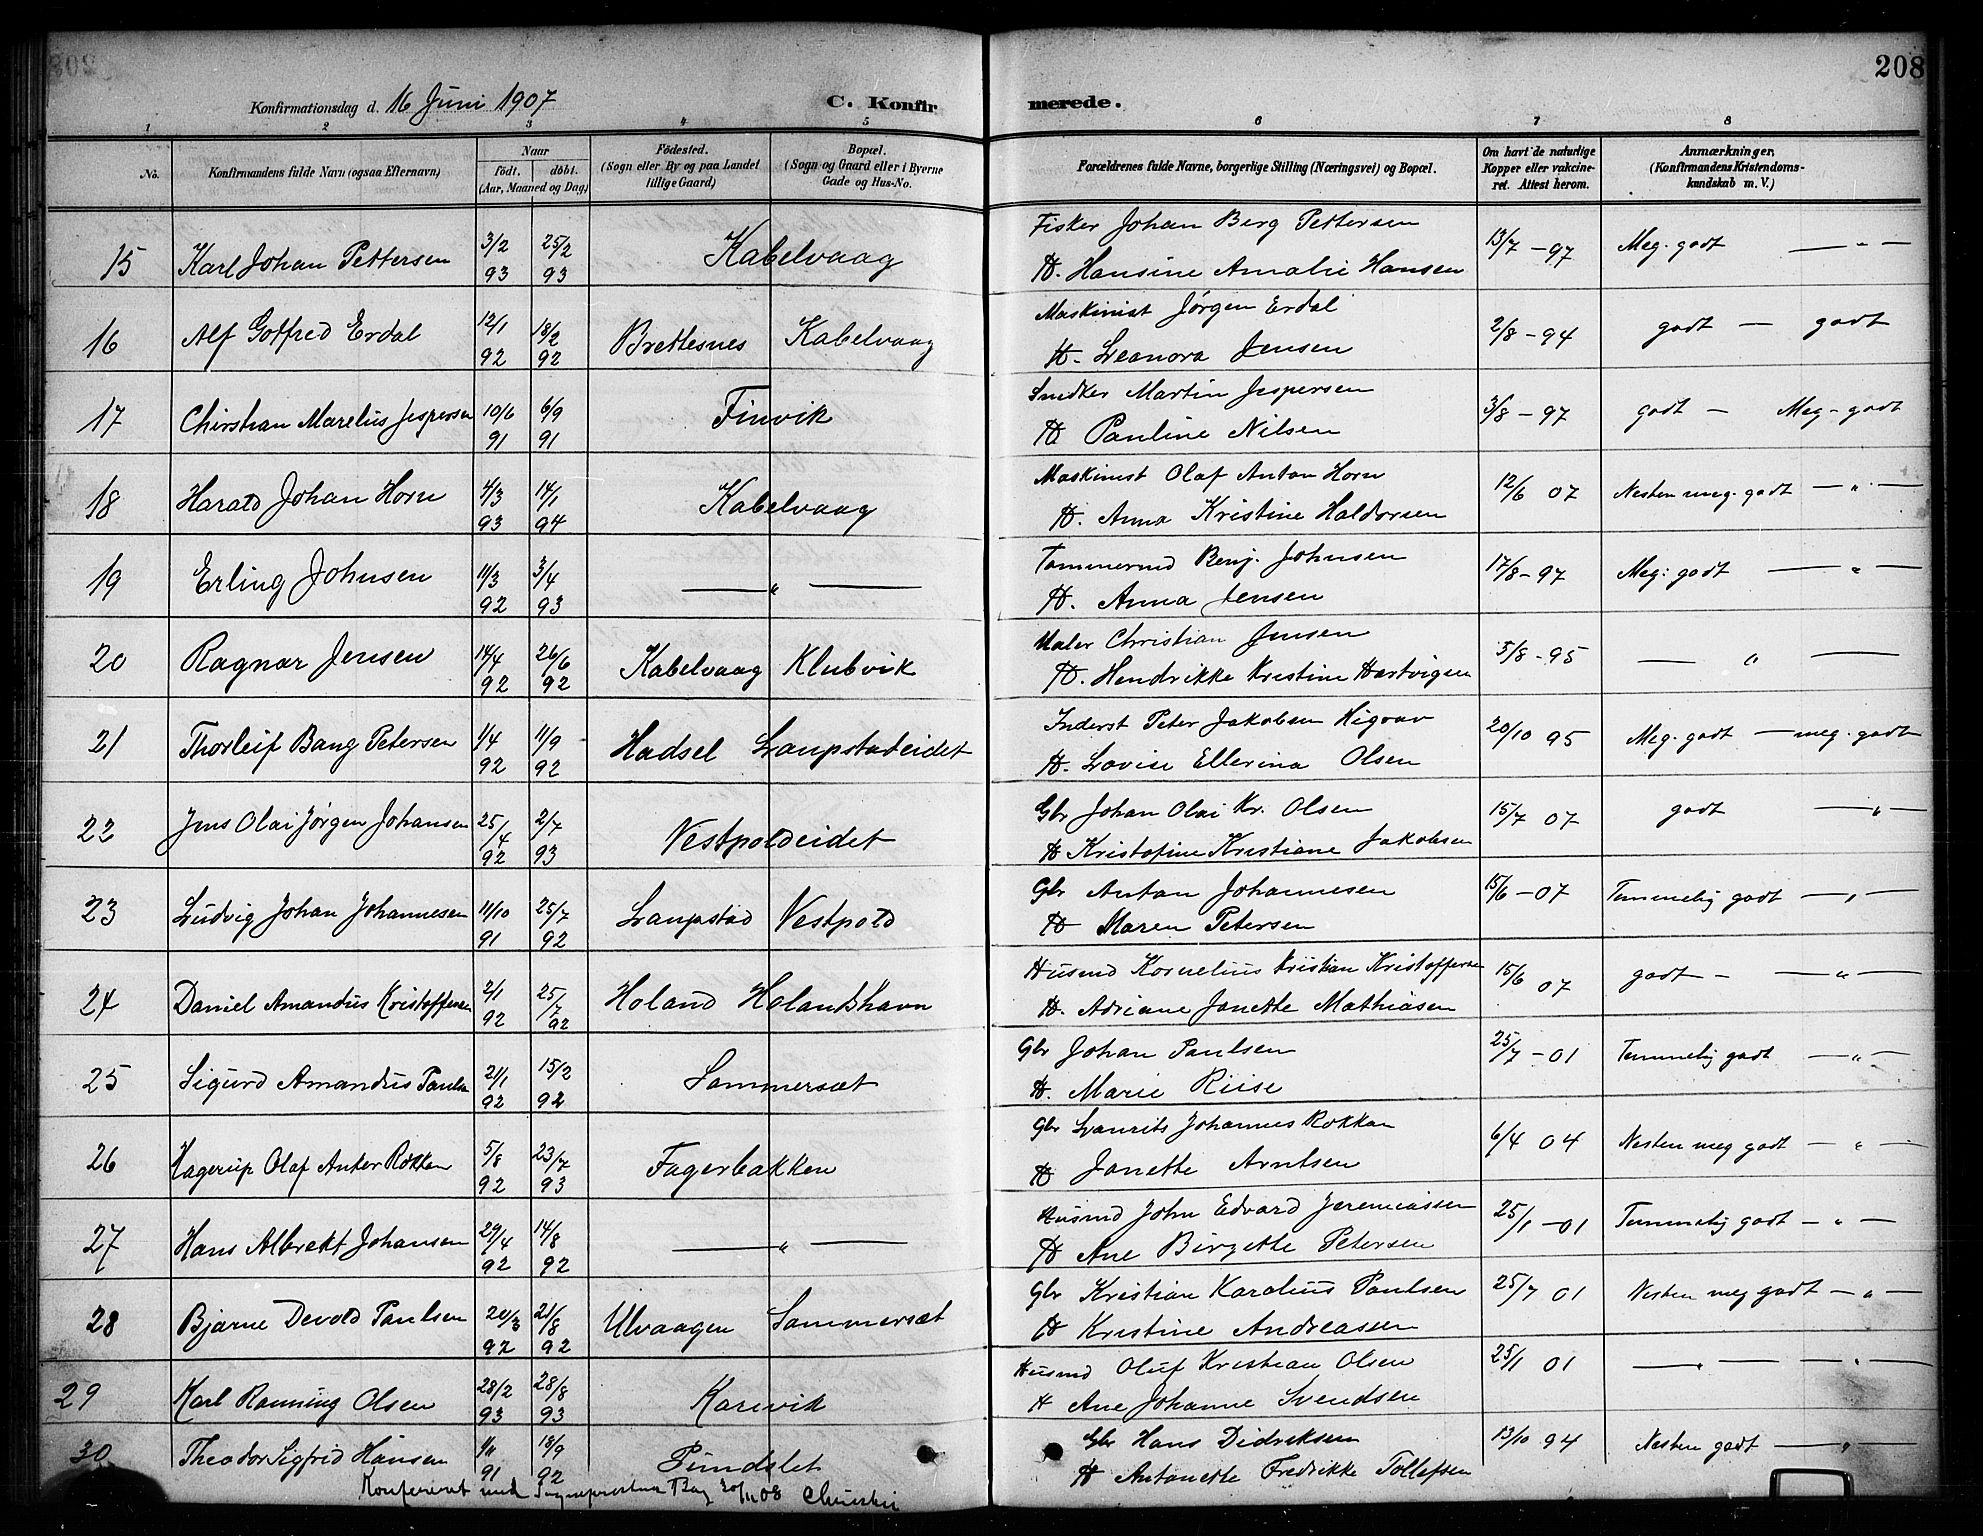 208
Konfirmationsdag d. 16 Juni 1907 C. Konfirmerede.
1 2 3 4 5 6 7 8
No. Konfirmandens fulde Navn (ogsaa Efternavn) Naar født. døbt. (Aar, Maaned og Dag) Fødested. (Sogn eller By og paa Landet tillige Gaard) Bopæl. (Sogn og Gaard eller i Byerne Gade og Hus-No. Forældrenes fulde Navne, borgerlige Stilling (Næringsvei) og Bopæl. Om havt de naturlige Kopper eller vakcineret. Attest herom. Anmærkninger, (Konfirmandens Kristendomskundskab m. V.)
15 Karl Johan Pettersen 3/2 93 25/2 93 Kabelvaag Fisker Johan Berg Pettersen 13/7 - 97 Meg. godt — " —
H. Hansine Amalie Hansen
16 Alf Gotfred Erdal 12/1 92 18/2 92 Brettesnes Kabelvaag Maskinist Jørgen Erdal 2/8 - 94 godt — godt
H. Leanora Jensen
17 Chirstian Marelius Jespersen 10/6 91 6/9 91 Finvik Snedker Martin Jespersen 3/8 - 97 godt — Meg. godt
H Pauline Nilsen
18 Harald Johan Horn 4/3 93 14/1 94 Kabelvaag Maskinist Olaf Anton Horn 12/6 07 Nesten meg. godt — " —
H. Anna Kristine Haldorsen
19 Erling Johnsen 11/3 92 3/4 93 — " — Tømmermd Benj. Johnsen 17/8 - 97 Meg: godt — " —
H. Anna Jensen
20 Ragnar Jensen 14/4 92 26/6 92 Kabelvaag Klubvik Maler Christian Jensen 5/8 - 95 — " —
H. Hendrikke Kristine Hartvigsen
21 Thorleif Bang Petersen 1/4 92 11/9 92 Hadsel Laupstadeidet Inderst Peter Jakobsen Higrav 20/10 95 Meg. godt — meg. godt
H. Lovise Ellerina Olsen
22 Jens Olai Jørgen Johansen 25/4 92 2/7 93 Vestpoldeidet Gbr Johan Olai Kr. Olsen 15/7 07 godt — " —
H Kristofine Kristiane Jakobsen
23 Ludvig Johan Johannesen 11/10 91 25/7 92 Laupstad Vestpold Gbr Antan Johannesen 15/6 - 07 Temmelig godt — " —
H Maren Petersen
24 Daniel Amandus Kristoffersen 2/1 92 25/7 92 Holand Holandshavn Husmd Kornelius Kristian Kristoffersen 15/6 07 godt — " —
H. Adriane Janette Mathiasen
25 Sigurd Amandus Paulsen 21/1 92 15/2 92 Sommersæt Gbr Johan Paulsen 25/7 - 01 Temmelig godt — " —
H. Marie Riise
26 Hagerup Olaf Anter Rokkan 5/8 92 23/7 93 Fagerbakken Gbr Laurits Johannes Rokkan 6/4 04 Nesten meg godt — " —
H Janette Arntsen
27 Hans Albrekt Johansen 29/4 92 14/8 92 — " — Husmd John Edvard Jeremiassen 25/1 - 01 Temmelig godt — " —
H Ane Birgette Petersen
28 Bjarne Devold Paulsen 20/3 92 21/8 92 Ulvaagen Sommersæt Gbr Kristian Karolius Paulsen 25/7 01 Nesten meg godt — " —
H Kristine Andreassen
29 Karl Ranning Olsen 28/2 93 28/8 93 Karivik Husmd Oluf Kristian Olsen 25/1 01 — " — — " —
H Ane Johanne Svendsen
30 Theodor Sigfrid Hansen 1/11 91 18/9 92 Pundslet Gbr Hans Didriksen 13/10 94 Nesten godt — " —
H Antonette Fredrikke Tollefsen
Konfereret med Sogneprestens Bog 30/11 08